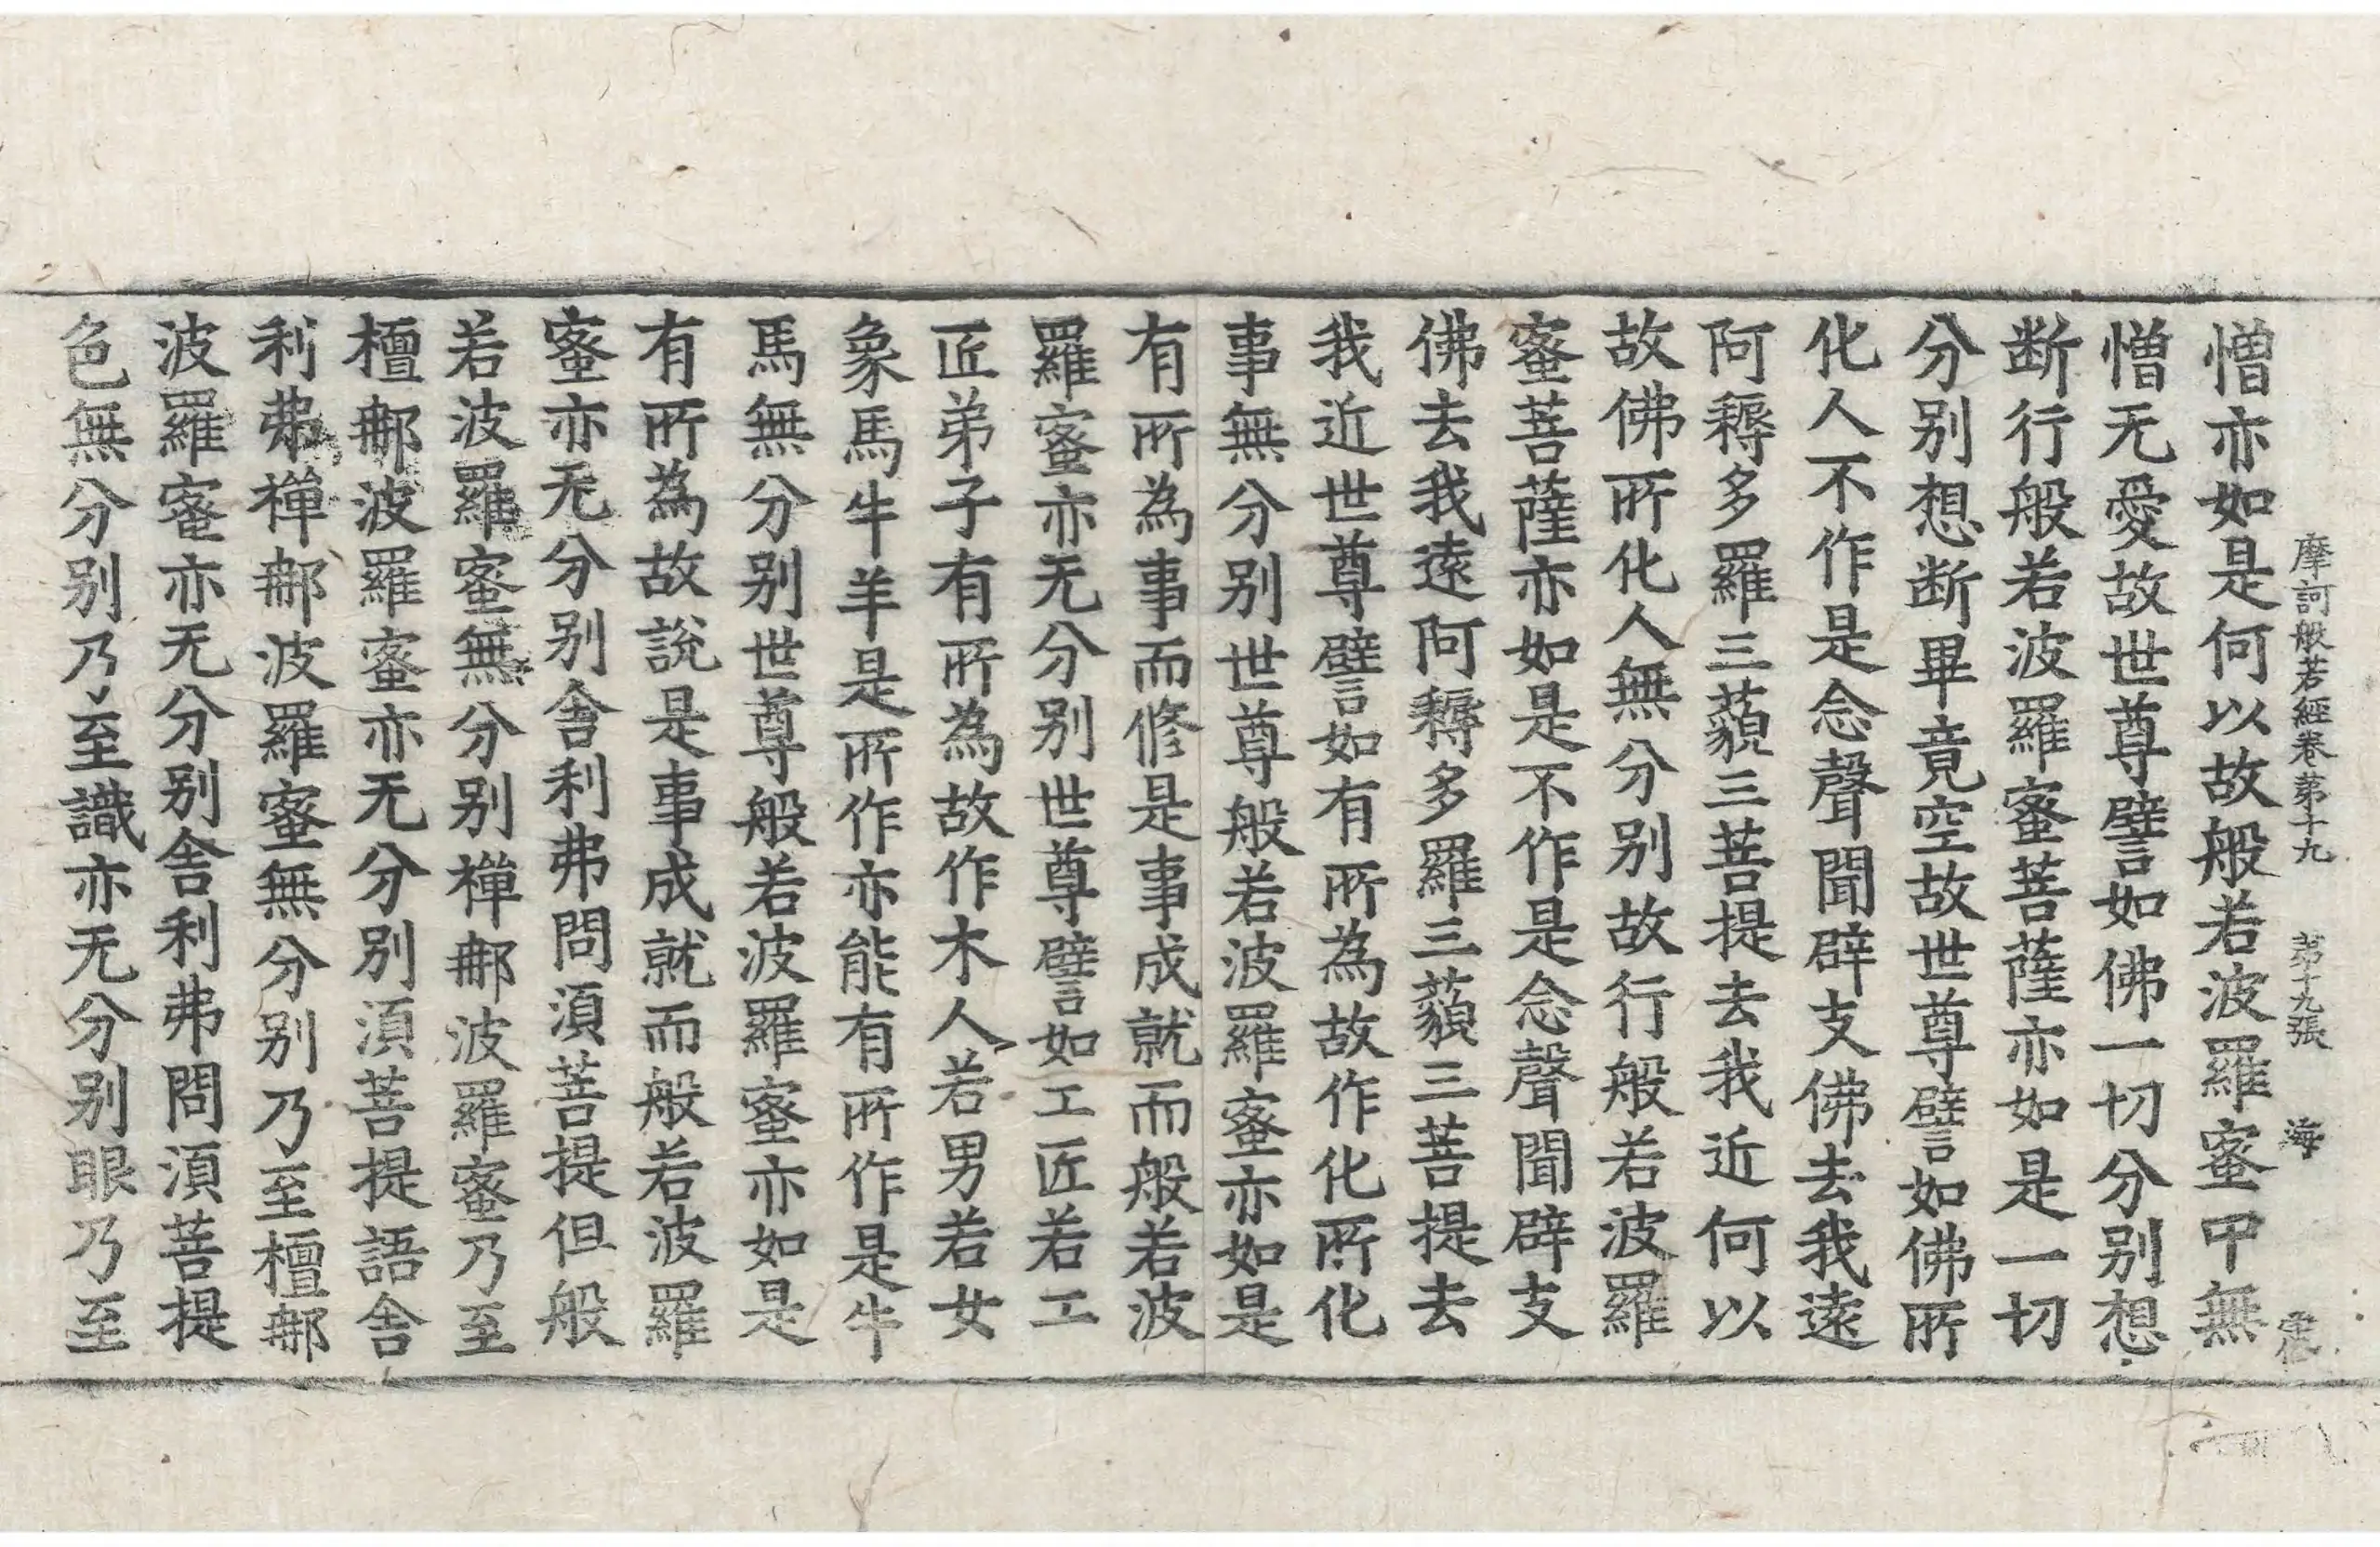 摩訶般若經卷第十九 第十九張 海
憎亦如是何以故般若波羅蜜中無
憎无愛故世尊譬如佛一切分別想
断行般若波羅蜜菩薩亦如是一切
分別想断畢竟空故世尊譬如佛所
化人不作是念聲聞辟支佛去我遠
阿耨多羅三藐三菩提去我近何以
故佛所化人無分別故行般若波羅
蜜菩薩亦如是不作是念聲聞辟支
佛去我遠阿耨多羅三藐三菩提去
我近世尊譬如有所為故作化所化
事無分別世尊般若波羅蜜亦如是
有所為事而修是事成就而般若波
羅蜜亦无分別世尊譬如工匠若工
匠弟子有所為故作木人若男若女
象馬牛羊是所作亦能有所作是牛
馬無分別世尊般若波羅蜜亦如是
有所為故說是事成就而般若波羅
蜜亦无分別舎利弗問湏菩提但般
若波羅蜜無分別禪那波羅蜜乃至
檀那波羅蜜亦无分別湏菩提語舎
利弗禪那波羅蜜無分別乃至檀那
波羅蜜亦无分別舎利弗問湏菩提
色無分別乃至識亦无分別眼乃至